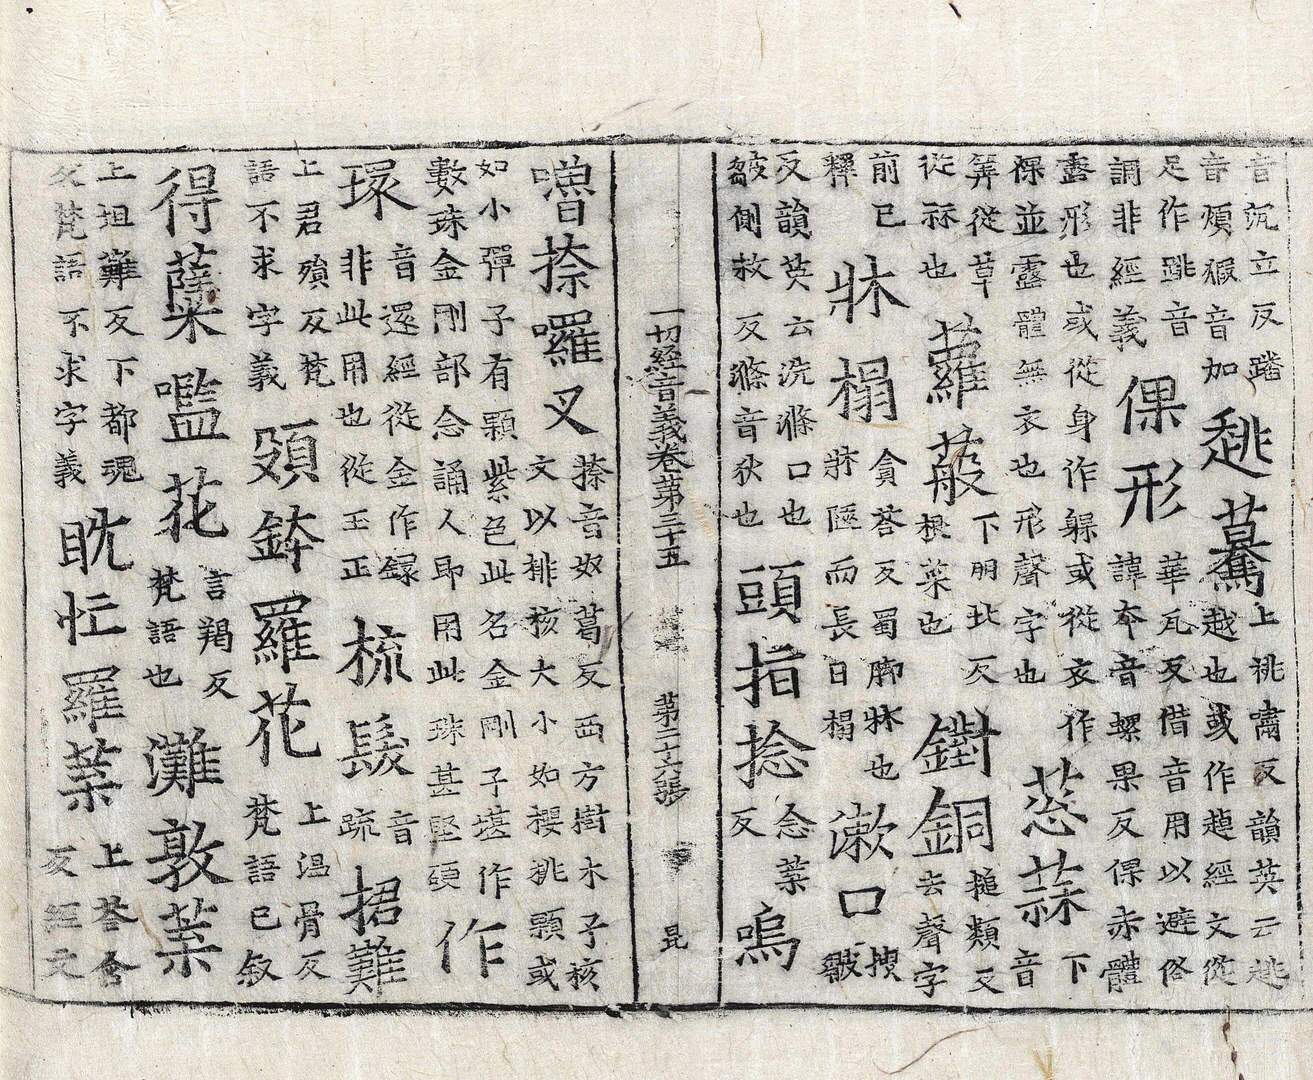 音沉立反踏
音煩猳音加
趒驀
上祧嘯反韻英云趒
越也或作趠經文從
足作跳音
調非經義
倮形
華瓦反借音用以避俗
諱本音螺果反倮赤體
露形也或從身作躶或從衣作
裸並露體無衣也形聲字也
葱蒜
下
音
筭從草
從祘也
蘿菔
下朋北反
根菜也
鑆銅
槌類反
去聲字
前已
釋
牀榻
貪荅反蜀脚牀也
牀陿而長曰榻
漱口
搜
皺
反韻英云洗滌口也
皺側救反滌音狄也
頭指捻
念葉
反
嗚
一切經音義卷第三十五 第二十六張 昆
嚕捺囉叉
捺音奴葛反西方樹木子核
文以排核大小如櫻桃顆或
如小彈子有顆紫色此名金剛子堪作
數珠金剛部念誦人即用此珠甚堅硬
作
環
音還經從金作鐶
非此用也從玉正
梳髮
音
疏
捃難
上君殞反梵
語不求字義
頞鉢羅花
上溫骨反
梵語已敘
得蘗嚂花
言羯反
梵語也
灘敦葉
上坦難反下都魂
反梵語不求字義
眈忙羅葉
上荅含
反經文